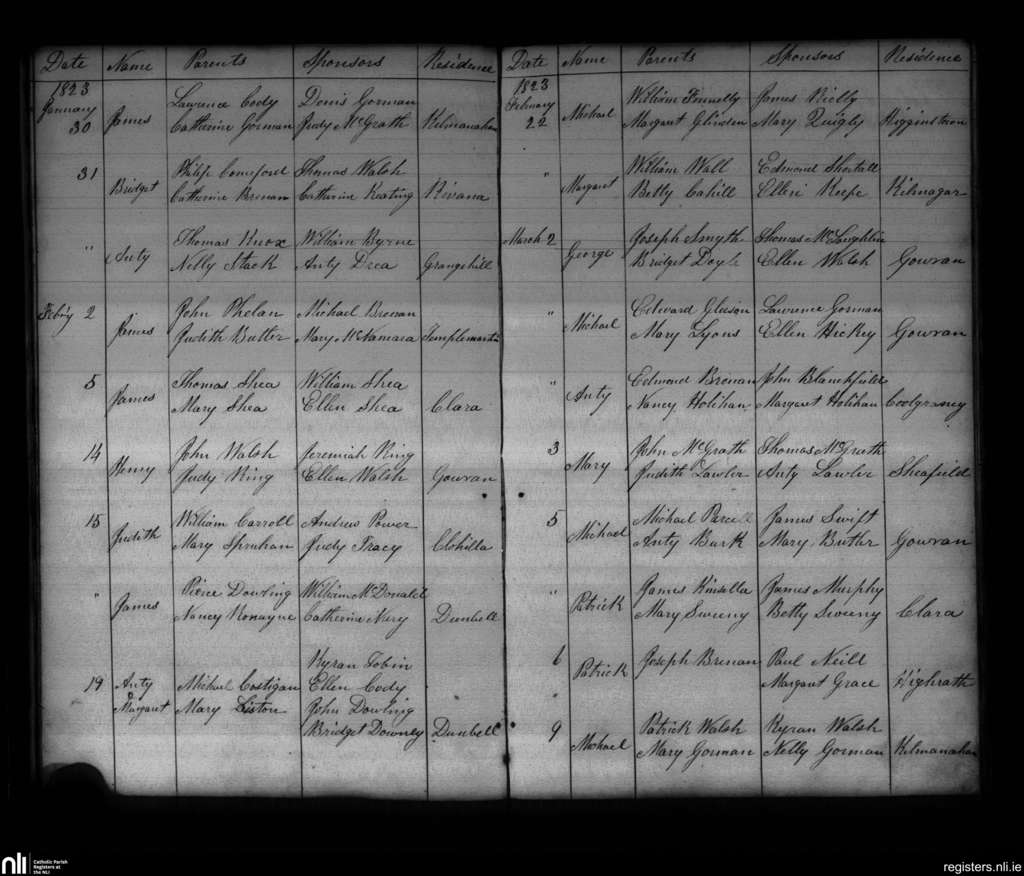 Date Name Parents Sponsors Residence
1823
January Lawrence Cody Denis Gorman
30 James Catherine Gorman Judy McGrath Kilmanahan
31 Philip Comeford Thomas Walsh
Bridget Catherine Brenan Catherine Keating Kivana
" Thomas Knox William Byrne
Anty Nelly Stack Anty Drea Grangehill
Feb'y 2 John Phelan Michael Brenan
James Judith Butler Mary McNamara Templemartin
5 Thomas Shea William Shea
James Mary Shea Ellen Shea Clara
14 John Walsh Jeremiah King
Henry Judy King Ellen Walsh Gowran
15 William Carroll Andrew Power
Judith Mary Spruhan Judy Tracy Clohilla
" Pierce Dowling William McDonald
James Nancy Ronayne Catherine Nery Dunbell
Kyran Tobin
19 Anty Michael Costigan Ellen Cody
& Margaret Mary Liston John Dowling
Bridget Downey Dunbell
Date Name Parents Sponsors Residence
1823
February William Finnelly James Rielly
22 Michael Margaret Glindon Mary Quigly Higginstown
" William Wall Edmond Shortall
Margaret Betty Cahill Ellen Keefe Kilnagar
March 2 Joseph Smyth Thomas McLaughlin
George Bridget Doyle Ellen Walsh Gowran
" Edward Gleeson Lawrence Gorman
Michael Mary Lyons Ellen Hickey Gowran
" Edmond Brenan John Blanchfield
Anty Nancy Holihan Margaret Holihan Coolgraney
3 John McGrath Thomas McGrath
Mary Judith Lawler Anty Lawler Sheafield
5 Michael Purcell James Swift
Michael Anty Burk Mary Butler Gowran
" James Kinsella James Murphy
Patrick Mary Sweeny Betty Sweeny Clara
6 Joseph Brenan Paul Neill
Patrick Margaret Grace Highrath
9 Patrick Walsh Kyran Walsh
Michael Mary Gorman Nelly Gorman Kilmanahan
nli Catholic Parish
Registers at
the NLI
registers.nli.ie